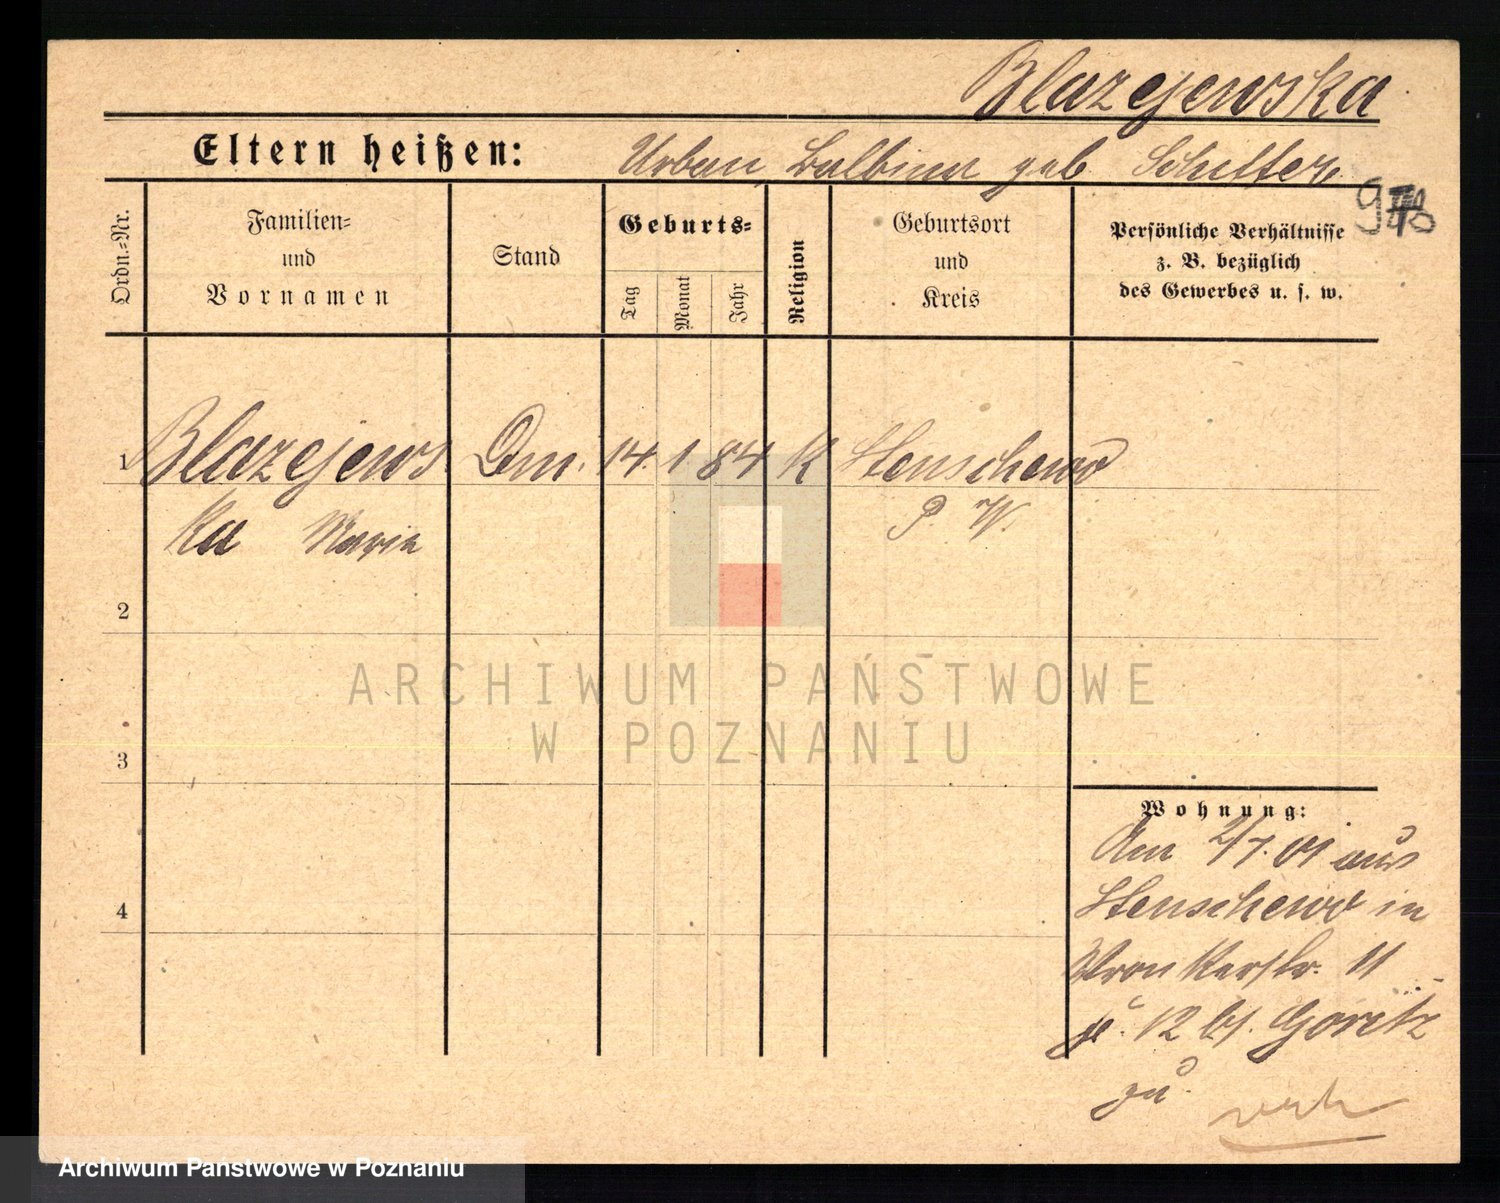 Blazejewska
Eltern heißen: Urban, Balbina geb Schiller
Ordn.-Nr.
Familien-
und
Vornamen
Stand
Geburts-
Tag
Monat
Jahr
Religion
Geburtsort
und
Kreis
Persönliche Verhältnisse
z. B. bezüglich
des Gewerbes u. s. w.
1 Blazejews Dm. 14. 1 84 K Stenschewo
ka Maria P. W.
2
ARCHIWUM PAŃSTWOWE
W POZNANIU
3
4
Wohnung:
Am 2/7.01 aus
Stenschewo in
Wronkerstr. 11
12 bt. Goritz
zu
Archiwum Państwowe w Poznaniu